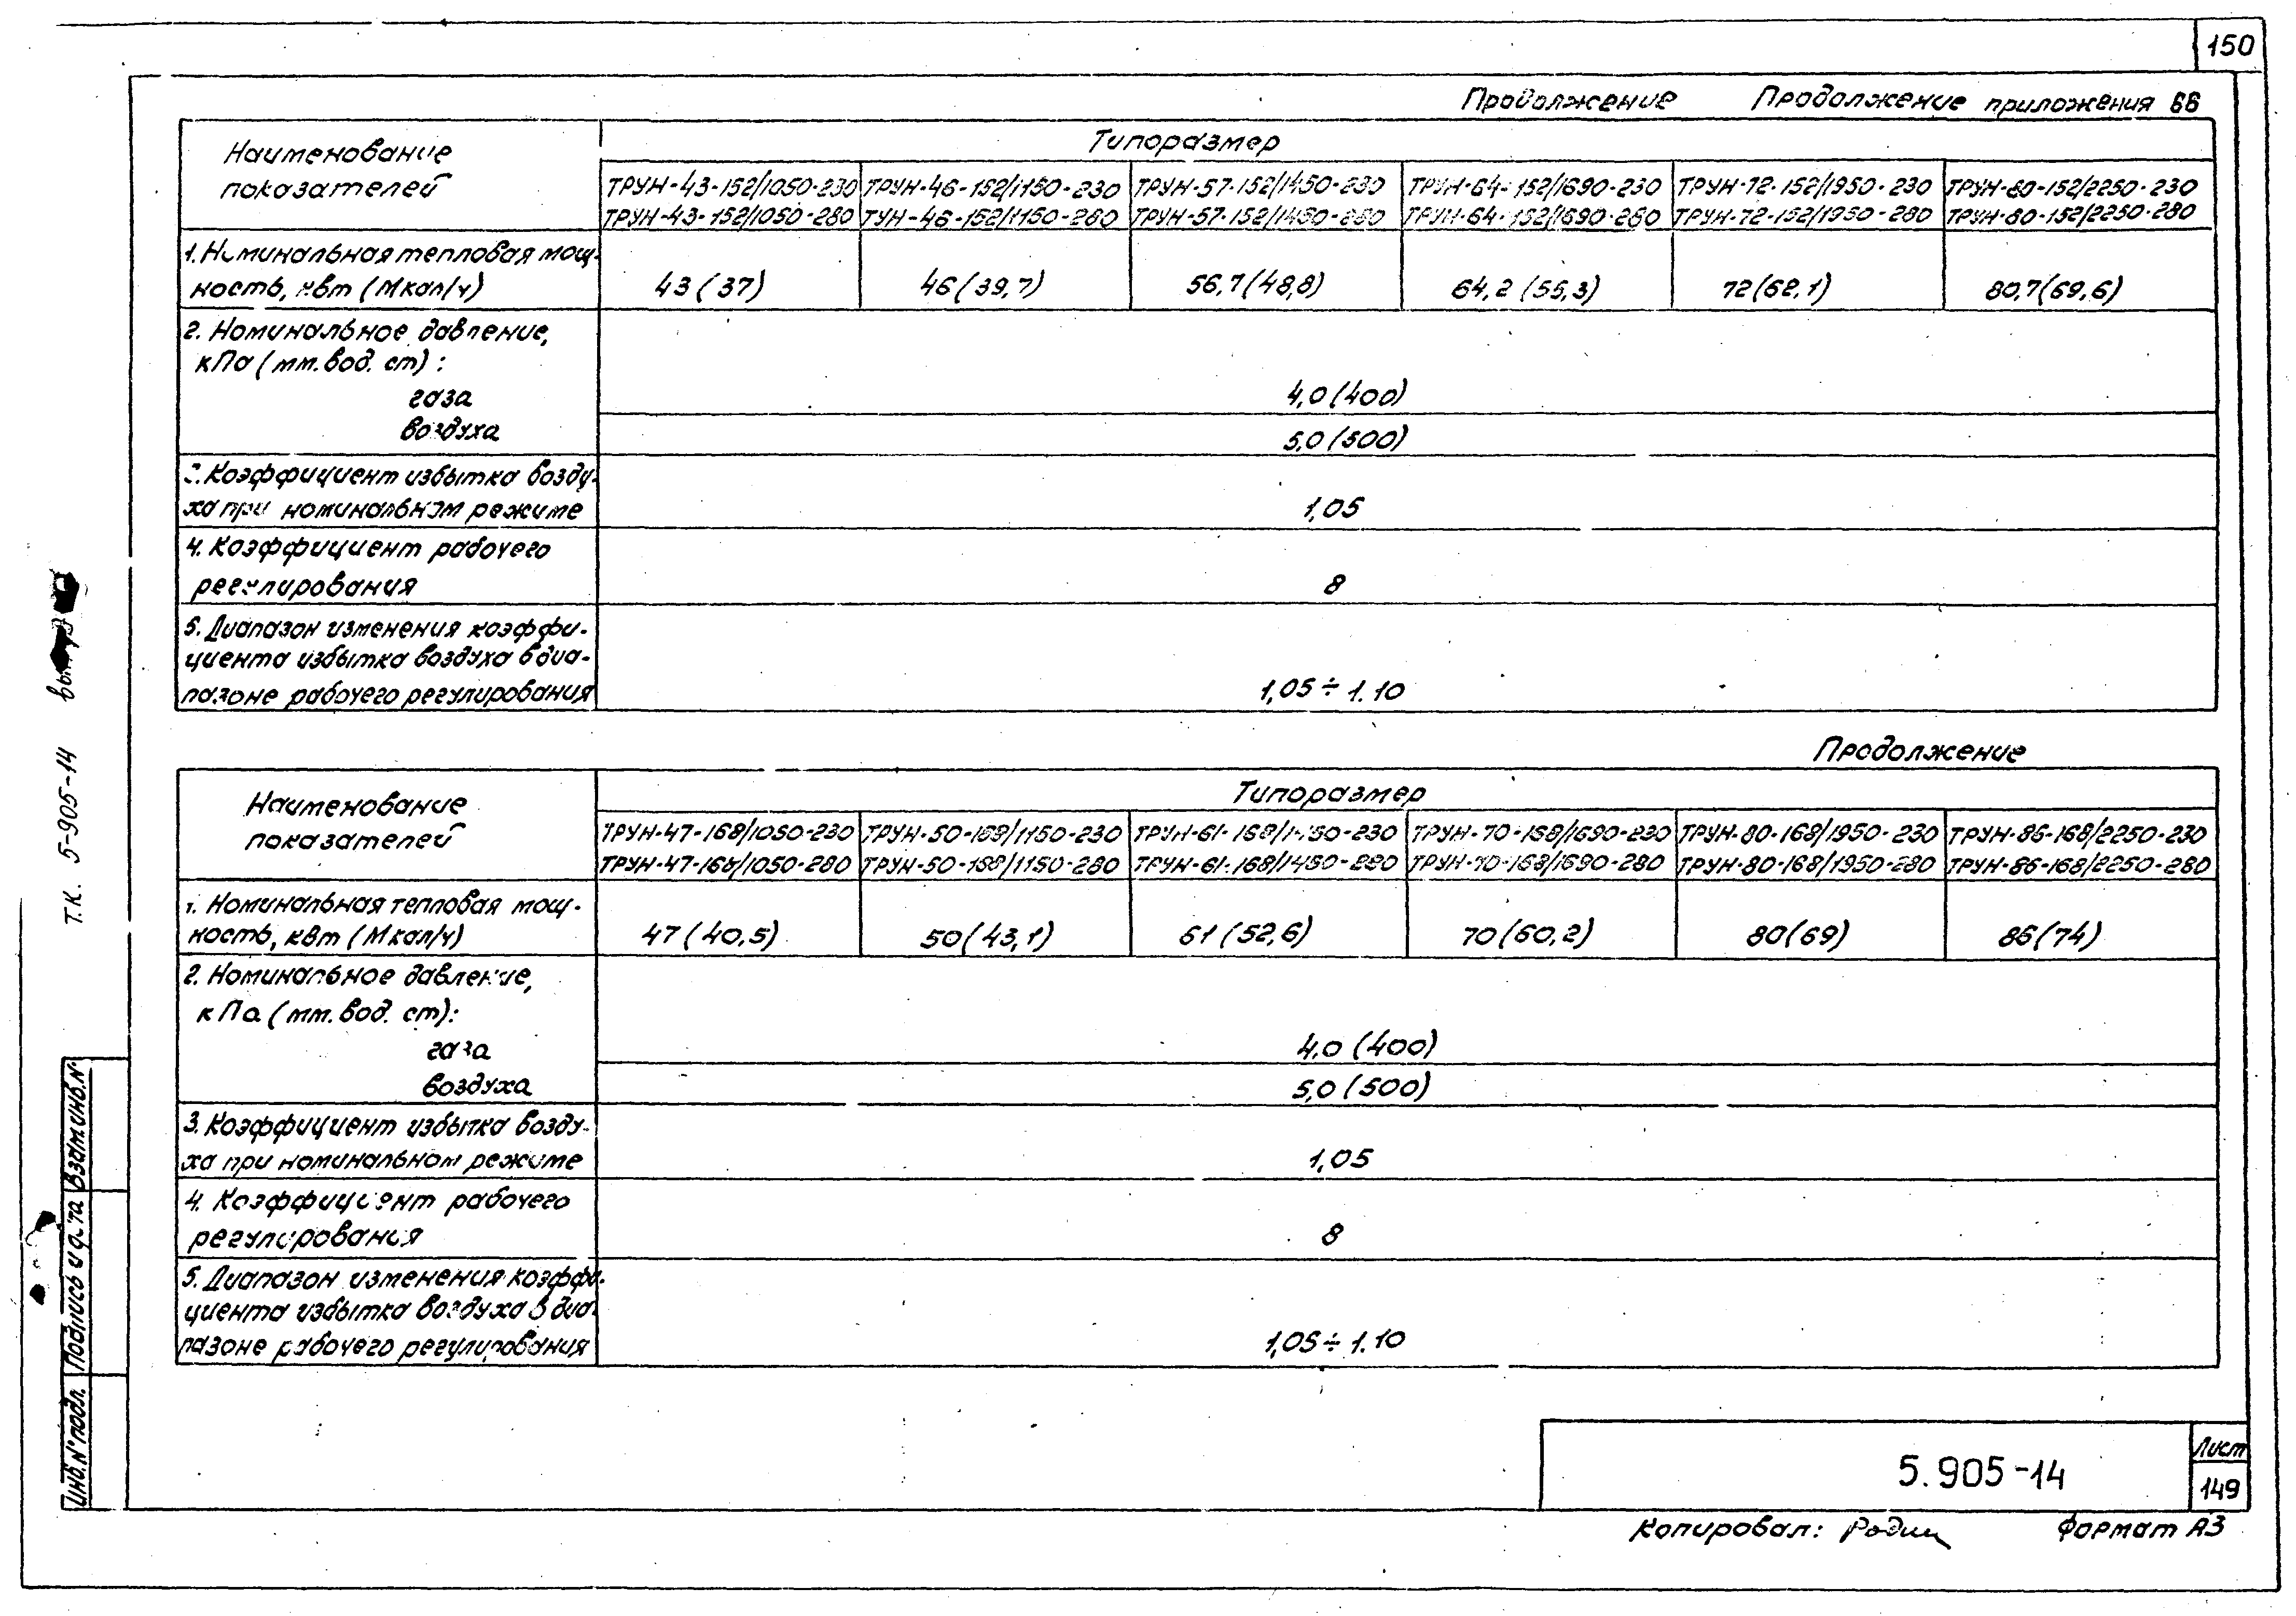 150
Продолжение Продолжение приложения 66
Наименование показателей
Типоразмер
ТРУН-43-152/1050-230 ТРУН-46-152/1150-230 ТРУН-57-152/1450-230 ТРУН-64-152/1690-230 ТРУН-72-152/1950-230 ТРУН-80-152/2250-230
ТРУН-43-152/1050-280 ТУН-46-152/1150-280 ТРУН-57-152/1450-280 ТРУН-64-152/1690-280 ТРУН-72-152/1950-280 ТРУН-80-152/2250-280
1. Номинальная тепловая мощ-
ность, квт (Мкал/ч) 43 (37) 46 (39,7) 56,7 (48,8) 64,2 (55,3) 72 (62,1) 80,7 (69,6)
2. Номинальное давление,
кПа (мм. вод. ст) :
газа 4,0 (400)
воздуха 5,0 (500)
3. Коэффициент избытка возду-
ха при номинальном режиме 1,05
4. Коэффициент рабочего
регулирования 8
5. Диапазон изменения коэффи-
циента избытка воздуха в диа-
пазоне рабочего регулирования 1,05 ÷ 1.10
Продолжение
Наименование показателей
Типоразмер
ТРУН-47-168/1050-230 ТРУН-50-168/1150-230 ТРУН-61-168/1450-230 ТРУН-70-168/1690-230 ТРУН-80-168/1950-230 ТРУН-86-168/2250-230
ТРУН-47-168/1050-280 ТРУН-50-168/1150-280 ТРУН-61-168/1450-280 ТРУН-70-168/1690-280 ТРУН-80-168/1950-280 ТРУН-86-168/2250-280
1. Номинальная тепловая мощ-
ность, квт (Мкал/ч) 47 (40,5) 50 (43,1) 61 (52,6) 70 (60,2) 80 (69) 86 (74)
2. Номинальное давление,
кПа (мм. вод. ст):
газа 4,0 (400)
воздуха 5,0 (500)
3. Коэффициент избытка возду-
ха при номинальном режиме 1,05
4. Коэффициент рабочего
регулирования 8
5. Диапазон изменения коэффи-
циента избытка воздуха в диа-
пазоне рабочего регулирования 1,05 ÷ 1.10
Т.К. 5-905-14
Инв. № подл. Подпись и дата Взам. инв. №
5.905-14
Лист
149
Копировал: Родин Формат А3